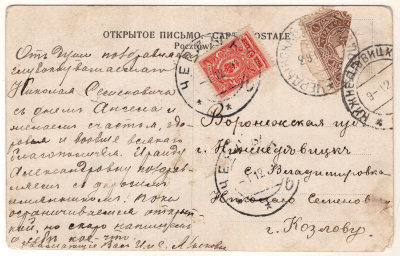 ОТКРЫТОЕ ПИСЬМО. — CARTE POSTALE
Отъ души поздравляемъ
глубокоуважаемаго
Николая Семеновича
съ днемъ Ангела и
желаемъ счастья, здо-
ровья и вообще всякаго
благополучія. Ираиду
Александровну поздрав-
ляемъ съ дорогимъ
имениникомъ. Пока
ограничиваемся открыт-
кой, но скоро напишемъ
кое-что.
Уважающіе Васъ
Воронежская губ.
г. Нижнедѣвицкъ
с. Владимировка
Николаю Семеновичу
г. Козлову.
9-12